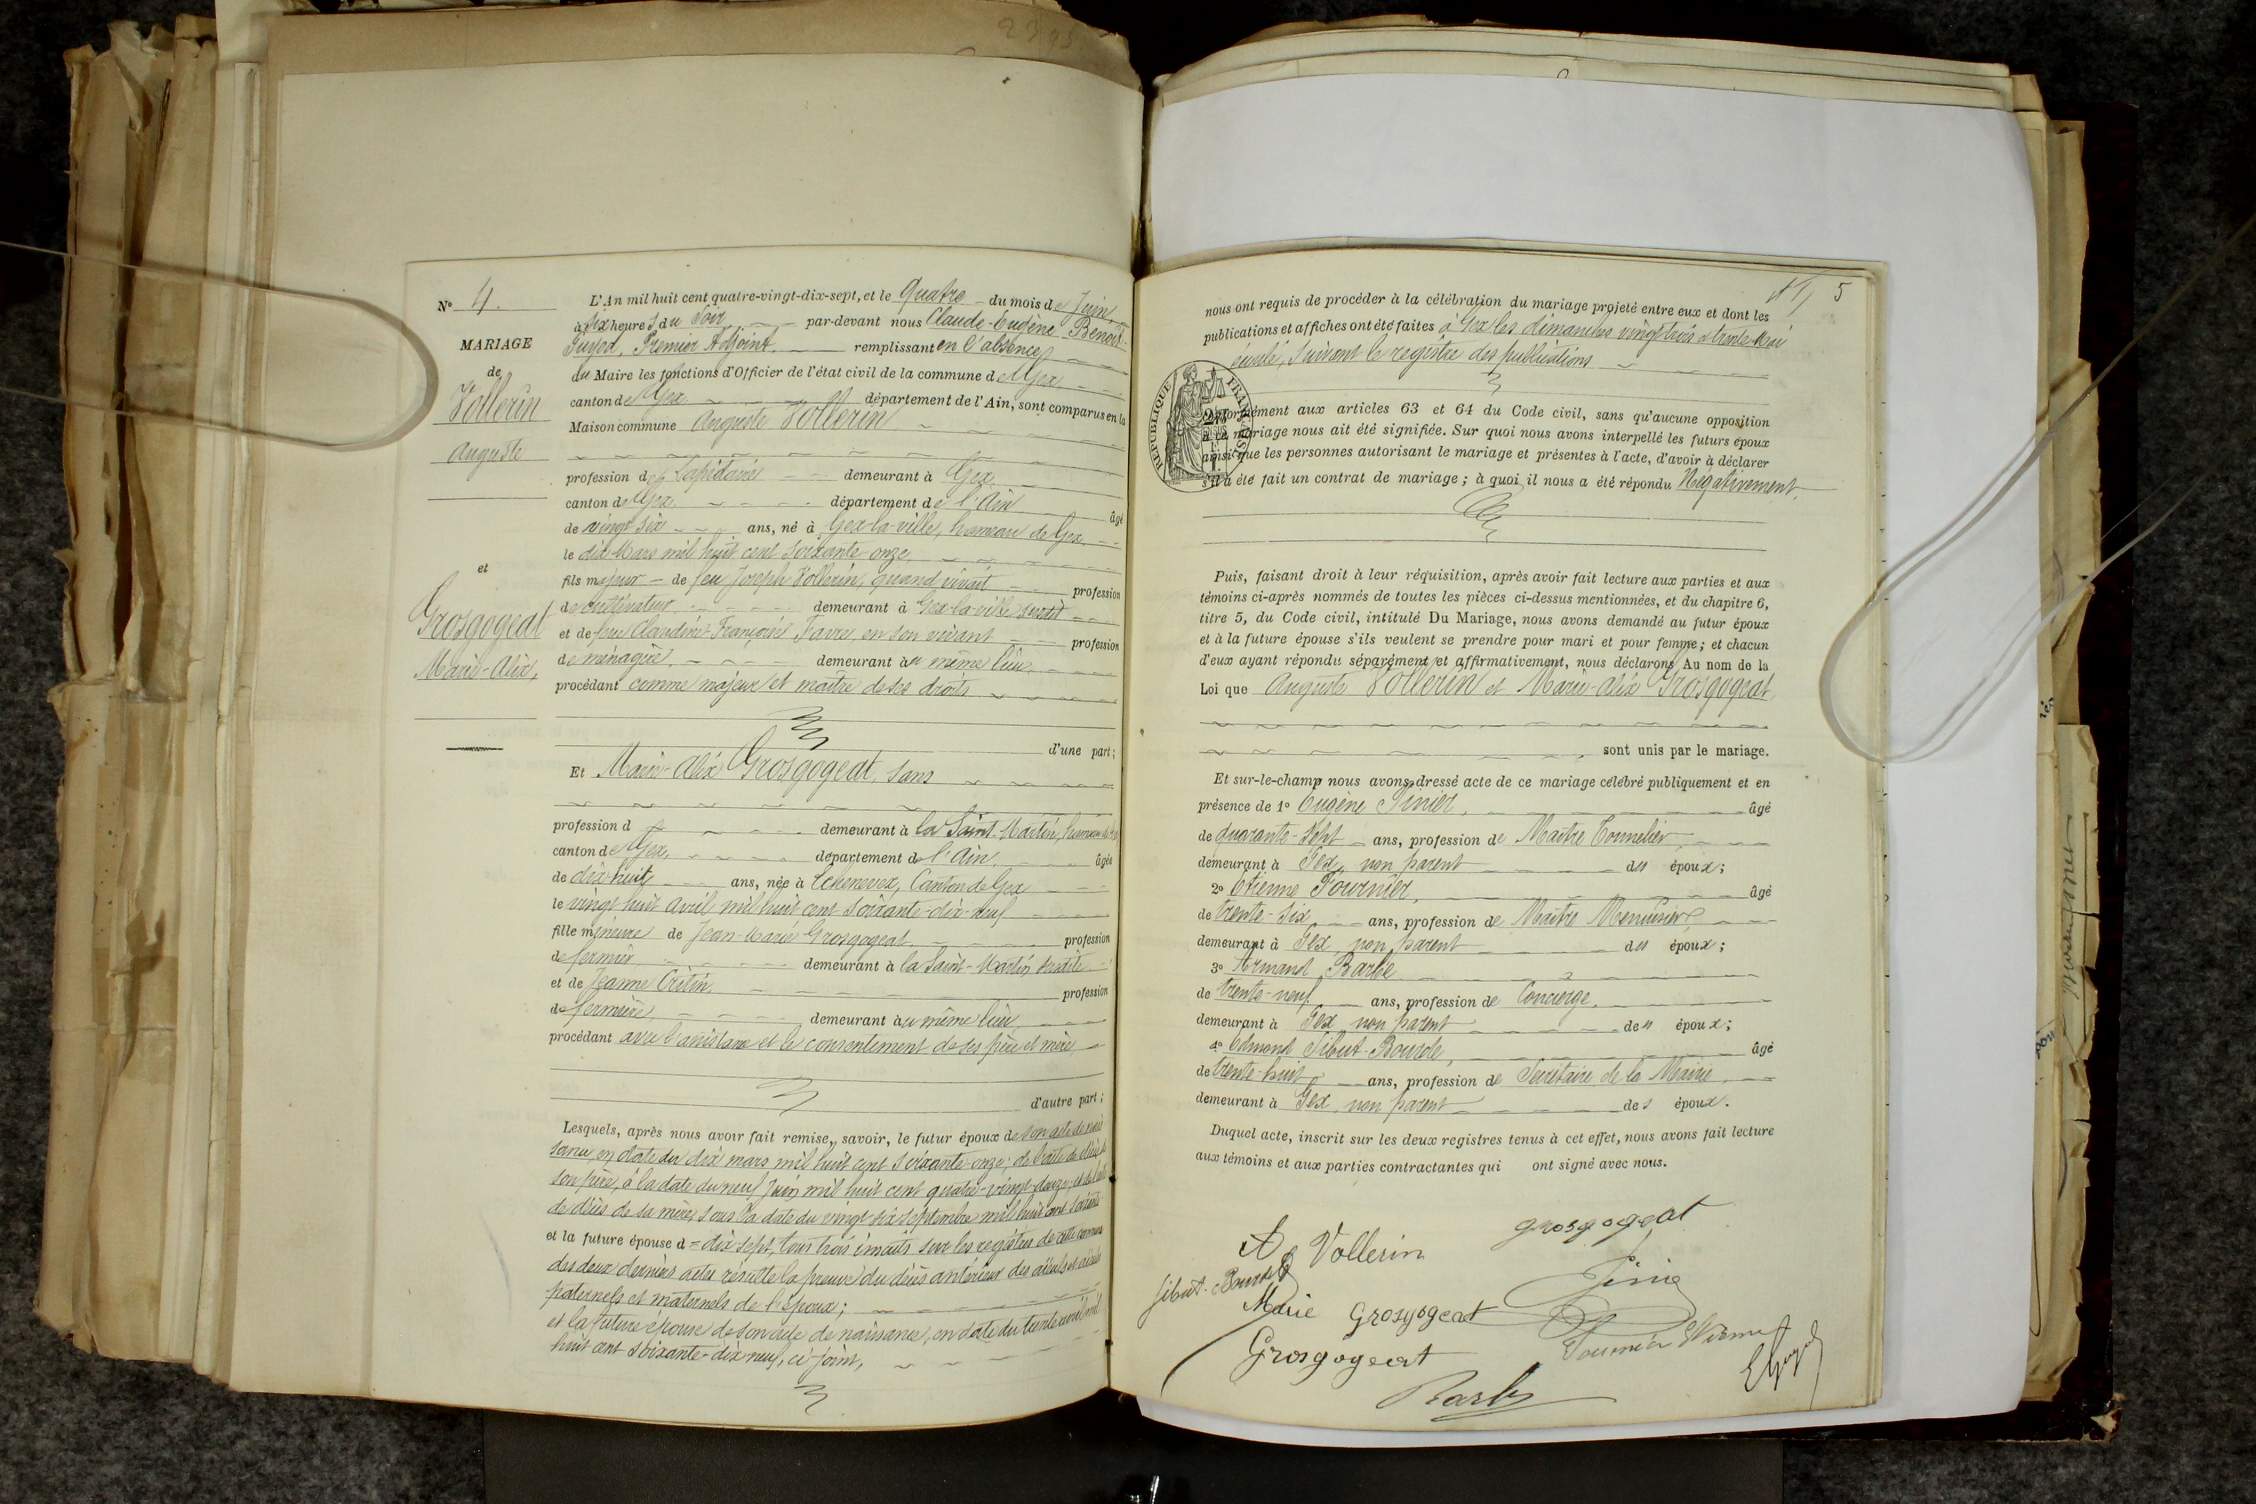 N° 4.
MARIAGE
de
Vollerin
Auguste
et
Grosgogeat
Marie-Alix,
L'An mil huit cent quatre-vingt-dix-sept, et le Quatre du mois de Juin,
à six heures du soir par-devant nous Claude-Eugène-Benoit
Premier Adjoint, remplissant en l'absence
du Maire les fonctions d'Officier de l'état civil de la commune de Gex
canton de Gex, département de l'Ain, sont comparus en la
Maison commune Auguste Vollerin
profession de Lapidaire demeurant à Gex,
canton de Gex, département de l'Ain âgé
de vingt six ans, né à Gex-la-ville, hameau de Gex,
le dix Mars mil huit cent soixante onze
fils majeur de feu Joseph Vollerin, quand vivait profession
de cultivateur demeurant à Gex-la-ville susdit
et de feue Claudine-Françoise Favre, en son vivant profession
de ménagère, demeurant au même lieu,
procédant comme majeur et maître de ses droits
d'une part;
Et Marie-Alix Grosgogeat, sans
profession d demeurant à la Saint-Martin, hameau de
canton de Gex, département de l'Ain, âgée
de dix-huit ans, née à Echenevex, Canton de Gex
le vingt huit avril mil huit cent soixante-dix-neuf
fille mineure de Jean-Marie Grosgogeat profession
de fermier demeurant à la Saint-Martin susdite
et de Jeanne Critin, profession
de fermière, demeurant au même lieu,
procédant avec l'assistance et le consentement de ses père et mère
d'autre part;
Lesquels, après nous avoir fait remise, savoir, le futur époux de son acte de nais
sance, en date du dix mars mil huit cent soixante-onze; de l'acte de décès de
son père, à la date du neuf Juin mil huit cent quatre-vingt-douze; et de l'acte
de décès de sa mère, sous la date du vingt six septembre mil huit cent soixante
et la future épouse d = dix-sept, tous trois inscrits sur les registres de cette commune
des deux derniers actes résulte la preuve du décès antérieur des aïeuls et aïeules
paternels et maternels de l'époux;
et la future épouse de son acte de naissance, en date du trente avril mil
huit cent soixante-dix neuf, ci-joint,
5
nous ont requis de procéder à la célébration du mariage projeté entre eux et dont les
publications et affiches ont été faites à Gex les dimanches vingt trois et trente Mai
écoulé, suivant le registre des publications
RÉPUBLIQUE FRANÇAISE
conformément aux articles 63 et 64 du Code civil, sans qu'aucune opposition
à ce mariage nous ait été signifiée. Sur quoi nous avons interpellé les futurs époux
ainsi que les personnes autorisant le mariage et présentes à l'acte, d'avoir à déclarer
s'il a été fait un contrat de mariage; à quoi il nous a été répondu Négativement.
Puis, faisant droit à leur réquisition, après avoir fait lecture aux parties et aux
témoins ci-après nommés de toutes les pièces ci-dessus mentionnées, et du chapitre 6,
titre 5, du Code civil, intitulé Du Mariage, nous avons demandé au futur époux
et à la future épouse s'ils veulent se prendre pour mari et pour femme; et chacun
d'eux ayant répondu séparément et affirmativement, nous déclarons Au nom de la
Loi que Auguste Vollerin et Marie-Alix Grosgogeat
sont unis par le mariage.
Et sur-le-champ nous avons dressé acte de ce mariage célébré publiquement et en
présence de 1° Eugène Pinier, âgé
de quarante-sept ans, profession de Maître Tonnelier,
demeurant à Gex, non parent des époux;
2° Etienne Fournier, âgé
de trente-six ans, profession de Maître Menuisier,
demeurant à Gex, non parent des époux;
3° Armand Barbe
de trente-neuf ans, profession de Concierge,
demeurant à Gex, non parent des époux;
4° Edmond Sibut-Bourde, âgé
de trente-huit ans, profession de Secrétaire de la Mairie,
demeurant à Gex, non parent des époux.
Duquel acte, inscrit sur les deux registres tenus à cet effet, nous avons fait lecture
aux témoins et aux parties contractantes qui ont signé avec nous.
A Vollerin
grosgogeat
Sibut-Bourde
Marie Grosgogeat
Grosgogeat
Fournier Etienne
Barbe